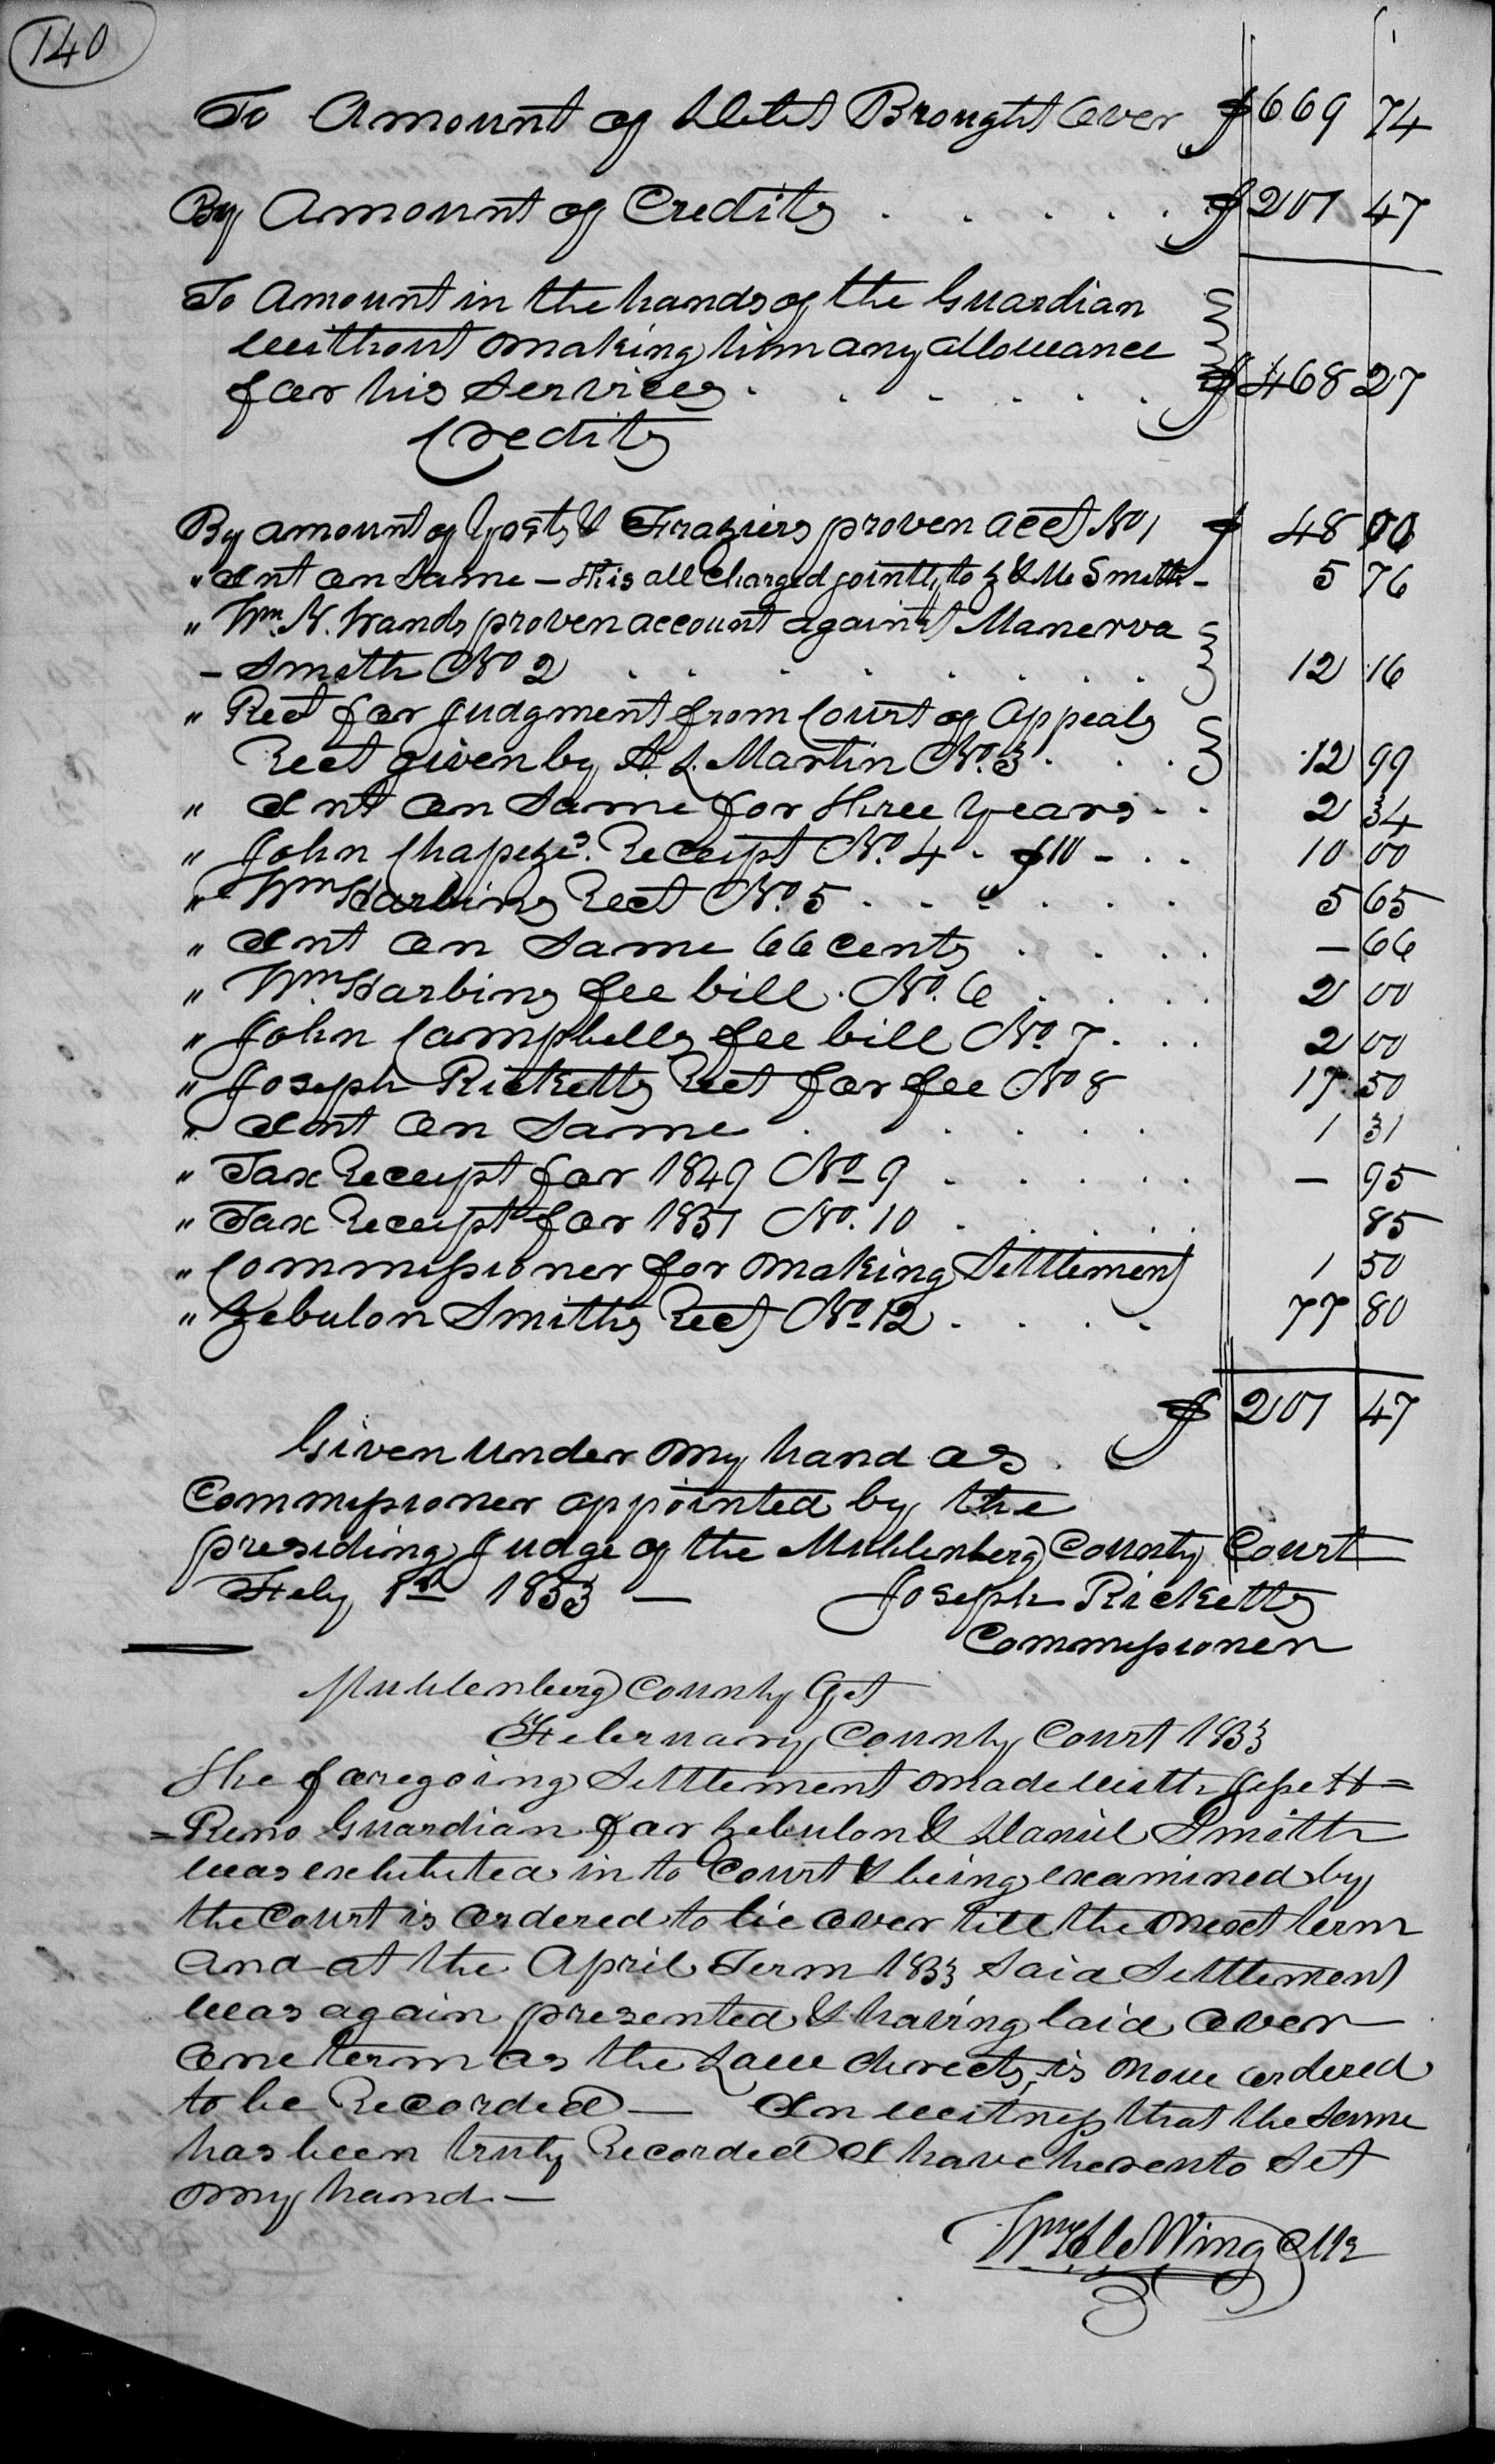 140
To Amount of Debts Brought Over $669 74
By Amount of Credits . . . . . $201 47
To Amount in the hands of the Guardian
without making him any allowance
for his services . . . . . . $468 27
Credits
By amount of Yosts & Fraziers proven acct No 1 $ 48 00
" Int on Same — This all Charged jointly to Z & M Smith - 5 76
" Wm. H. Wands proven account against Manerva
- Smith No 2 . . . . . . . 12 16
" Rect for Judgment from Court of Appeals
Rect given by A. L. Martin No. 3 . . . 12 99
" Int on Same for three years - . 2 34
" John Chapezes. Receipt No. 4 - $10 - . . 10 00
" Wm Harbins Rect No. 5 . . . . . . 5 65
" Int on Same 66 cents . . . . — 66
" Wm. Harbins fee bill. No. 6 . . . . 2 00
" John Campbells fee bill No. 7 . . . 2 00
" Joseph Ricketts Rect for fee No 8 17 50
" Int on Same . . . . . . 1 31
" Tax Receipt for 1849 No 9 . . . . . — 95
" Tax Receipt for 1851 No. 10 . . . . . 85
" Commissioner for making Settlement 1 50
" Zebulon Smiths Rect No 12 . . . . 77 80
$ 201 47
Given under my hand as
Commissioner appointed by the
presiding Judge of the Muhlenberg County Court
Feby 1st 1853 — Joseph Ricketts
Commissioner
Muhlenberg County Sct
February County Court 1853
The foregoing Settlement made with Jesse H=
=Reno Guardian for Zebulon & Daniel Smith
was exhibited in to Court & being examined by
the Court is ordered to lie over till the next term
and at the April Term 1853 Said Settlement
was again presented & having laid over
one term as the Law directs, is now ordered
to be Recorded — In witness that the same
has been truly Recorded I have hereunto Set
my hand —
Wm. H. C. Wing Clk